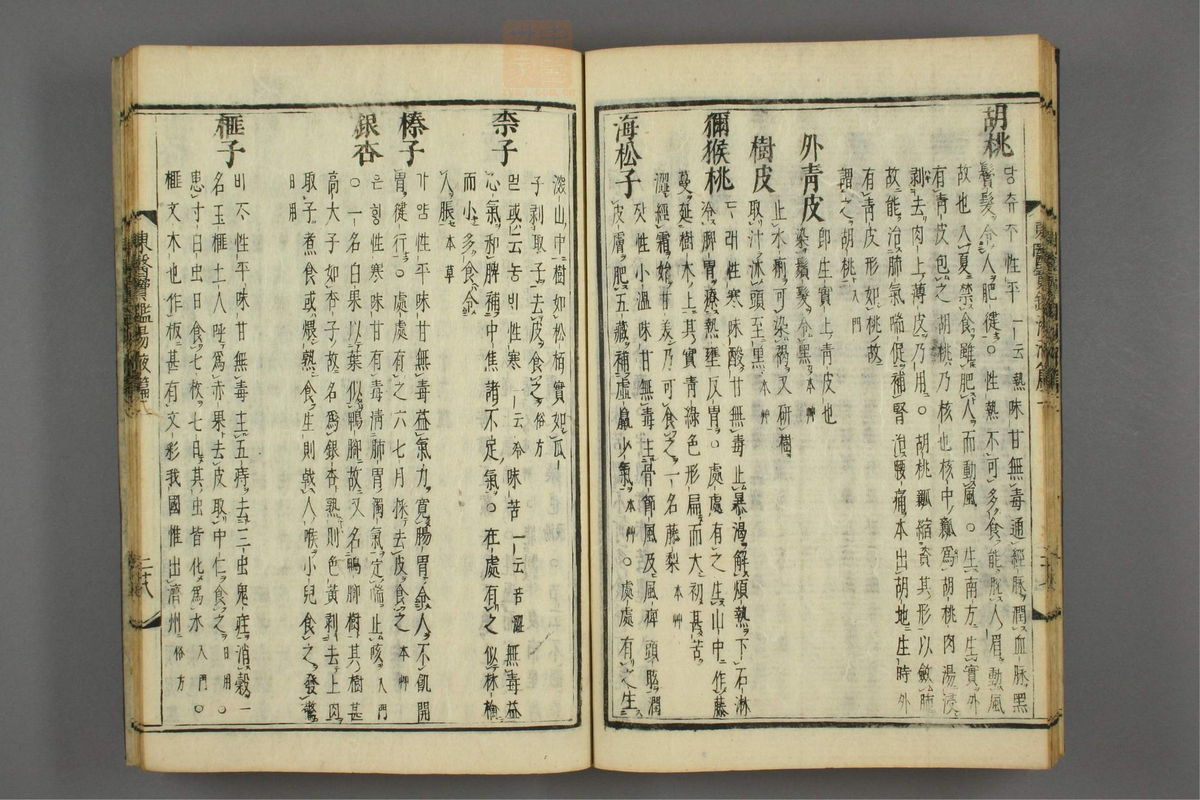 胡桃
당츄ᄌᆞ 性平 一云熱 味甘無毒通經脉潤血脉黑
鬢髮令人肥健○性熱不可多食能脫人眉動風
故也入夏禁食雖肥人而動風○生南方生實外
有青皮包之胡桃乃核也核中瓤爲胡桃肉湯浸
剥去肉上薄皮乃用○胡桃瓤縮資其形以斂肺
故能治肺氣喘促補腎治腰痛本出胡地生時外
有青皮形如桃故
謂之胡桃 入門
外青皮
卽生實上青皮也
染鬚髮令黑 本艸
樹皮
止水痢可染褐又研樹
取汁沐頭至黑 本艸
獼猴桃
ᄃᆞ래 性寒味酸甘無毒止暴渴解煩熱下石淋
冷脾胃療熱壅反胃○處處有之生山中作藤
蔓延樹木上其實青綠色形扁而大初甚苦
澁經霜始甘美乃可食之一名藤梨 本艸
海松子
잣 性小溫味甘無毒主骨節風及風痺頭眩潤
皮膚肥五藏補虛羸少氣 本艸 ○處處有之生
深山中樹如松栢實如瓜
子剥取子去皮食之 俗方
柰子
먼 或云농비 性寒 一云冷 味苦 一云苦澁 無毒益
心氣和脾補中焦諸不足氣○在處有之似林檎
而小多食令
人脹 本草
榛子
가얌 性平味甘無毒益氣力寬腸胃令人不飢開
胃健行○處處有之六七月採去皮食之 本艸
銀杏
은ᄒᆡᆼ 性寒味甘有毒淸肺胃濁氣定喘止咳 入門
○一名白果以葉似鴨脚故又名鴨脚樹其樹甚
高大子如杏子故名爲銀杏熟則色黃剥去上肉
取子煮食或煨熟食生則戟人喉小兒食之發驚
日用
榧子
비ᄌᆞ 性平味甘無毒主五痔去三虫鬼疰消穀○一
名玉榧土人呼爲赤果去皮取中仁食之 日用 ○
患寸白虫日食七枚七日其虫皆化爲水 入門 ○
榧文木也作板甚有文彩我國惟出濟州 俗方
東醫寶鑑湯液篇二
二十八